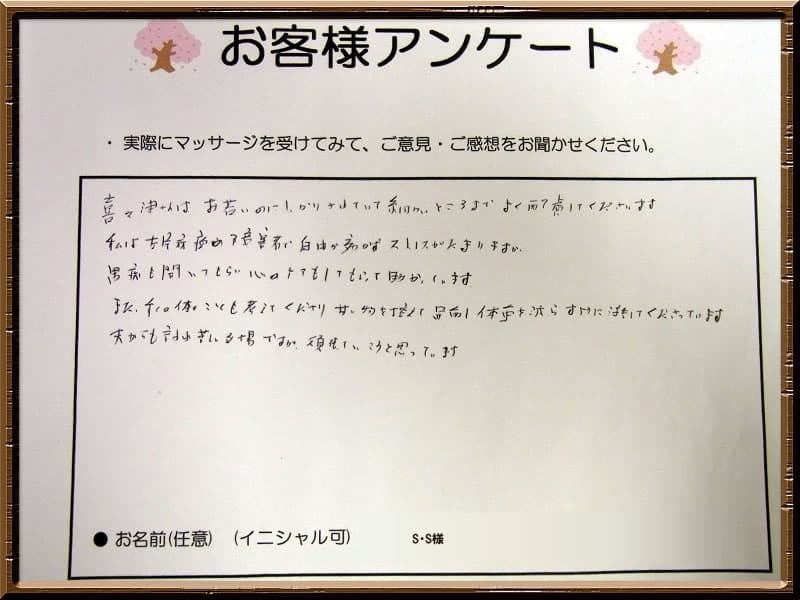 お客様アンケート
・実際にマッサージを受けてみて、ご意見・ご感想をお聞かせください。
喜々津さんは お若いのにしっかりされていて 細かいところまで よく配慮してくださいます
私は 障害者で 自由が ストレスがたまりますが、
愚痴も聞いてもらい 心のケアもしてもらって 助かっています
また、私の体のことも考えてくださり 甘い物を控えて 体重を減らす くださっています
夫からも ですが、頑張っていこうと思っています
● お名前(任意) (イニシャル可) S・S様